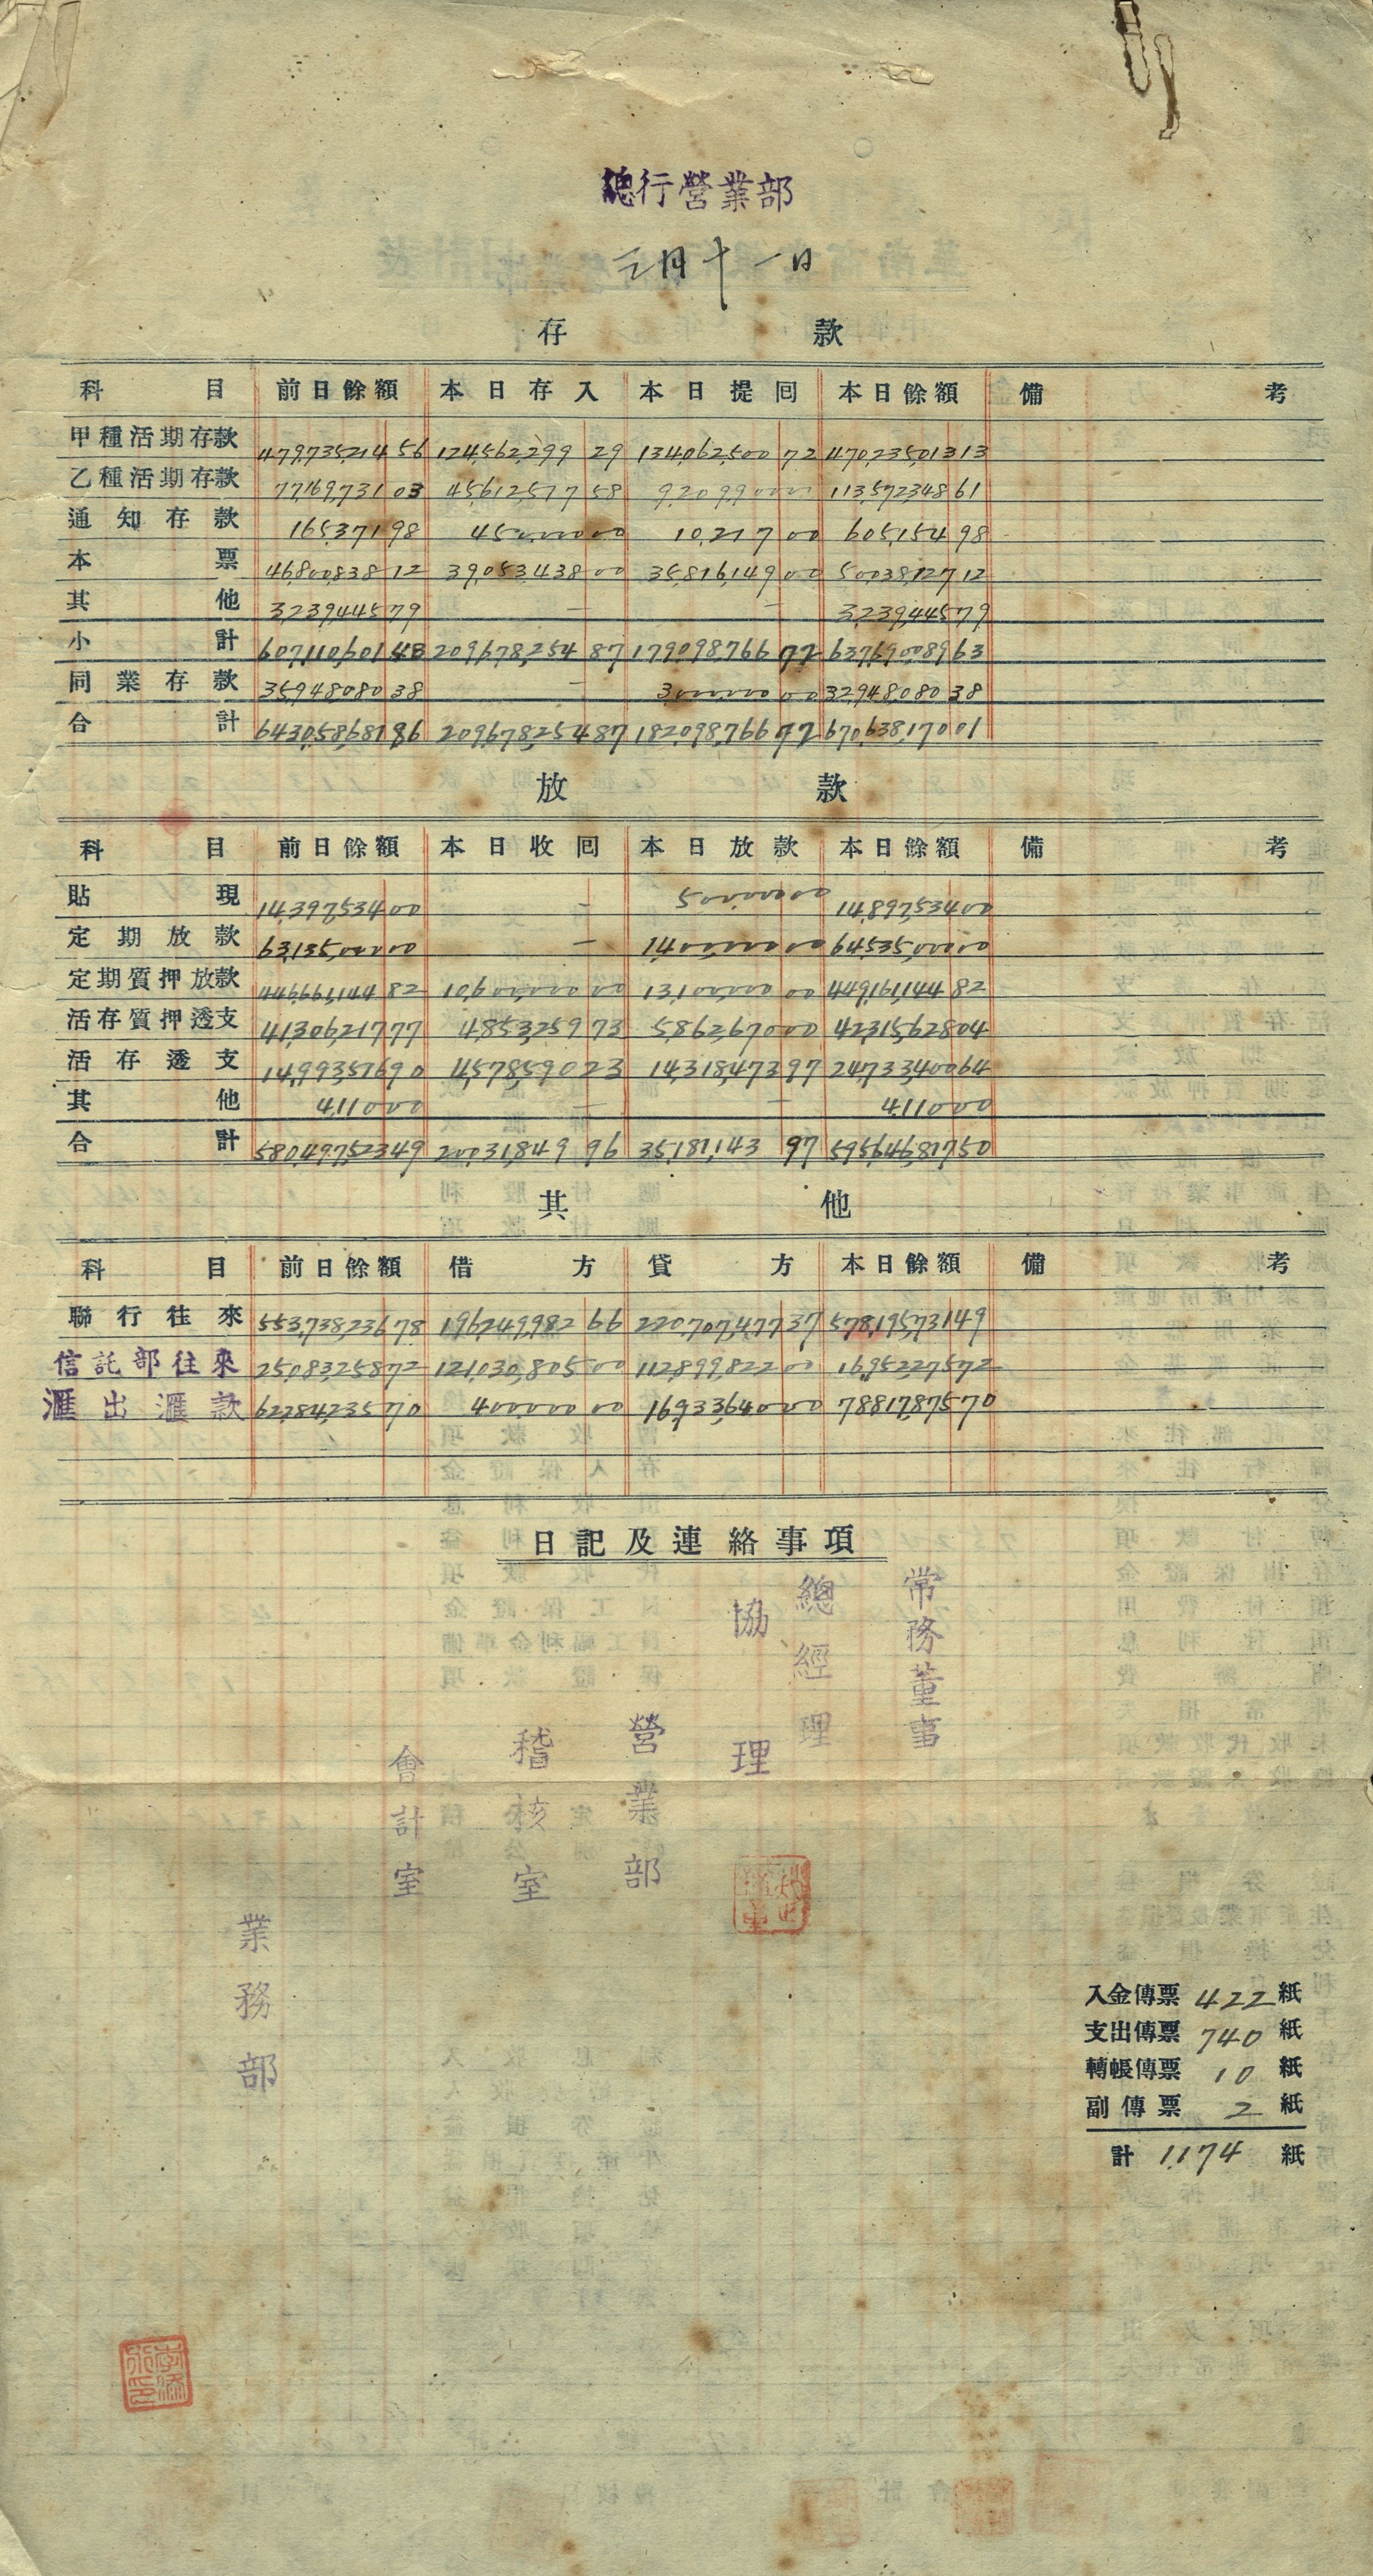 總行營業部
三月十一日
存款
科目 前日餘額 本日存入 本日提囘 本日餘額 備考
甲種活期存款 479,735,214 56 124,562,299 29 134,062,500 72 470,235,013 13
乙種活期存款 77,169,731 03 45,612,517 58 9,209,900 00 113,572,348 61
通知存款 165,371 98 450,000 00 10,217 00 605,154 98
本票 46,800,838 12 39,053,438 00 35,816,149 00 50,038,127 12
其他 3,239,445 79 — — 3,239,445 79
小計 607,110,601 48 209,678,254 87 179,098,766 72 637,690,089 63
同業存款 35,948,080 38 — 3,000,000 00 32,948,080 38
合計 643,058,681 86 209,678,254 87 182,098,766 72 670,638,170 01
放款
科目 前日餘額 本日收囘 本日放款 本日餘額 備考
貼現 14,397,534 00 — 500,000 00 14,897,534 00
定期放款 63,135,000 00 — 1,400,000 00 64,535,000 00
定期質押放款 446,661,144 82 10,600,000 00 13,100,000 00 449,161,144 82
活存質押透支 41,306,217 77 4,853,259 73 5,862,670 00 42,315,628 04
活存透支 14,993,516 90 4,578,590 23 14,318,473 97 24,733,400 64
其他 4,110 00 — — 4,110 00
合計 580,497,523 49 20,031,849 96 35,181,143 97 595,646,817 50
其他
科目 前日餘額 借方 貸方 本日餘額 備考
聯行往來 553,738,236 78 196,249,982 66 220,707,477 37 578,195,731 49
信託部往來 25,083,258 72 121,030,805 00 112,899,822 00 16,952,275 72
滙出滙款 62,284,235 70 400,000 00 16,933,640 00 78,817,875 70
日記及連絡事項
常務董事
總經理
協理
營業部
稽核室
會計室
業務部
入金傳票 422 紙
支出傳票 740 紙
轉帳傳票 10 紙
副傳票 2 紙
計 1,174 紙